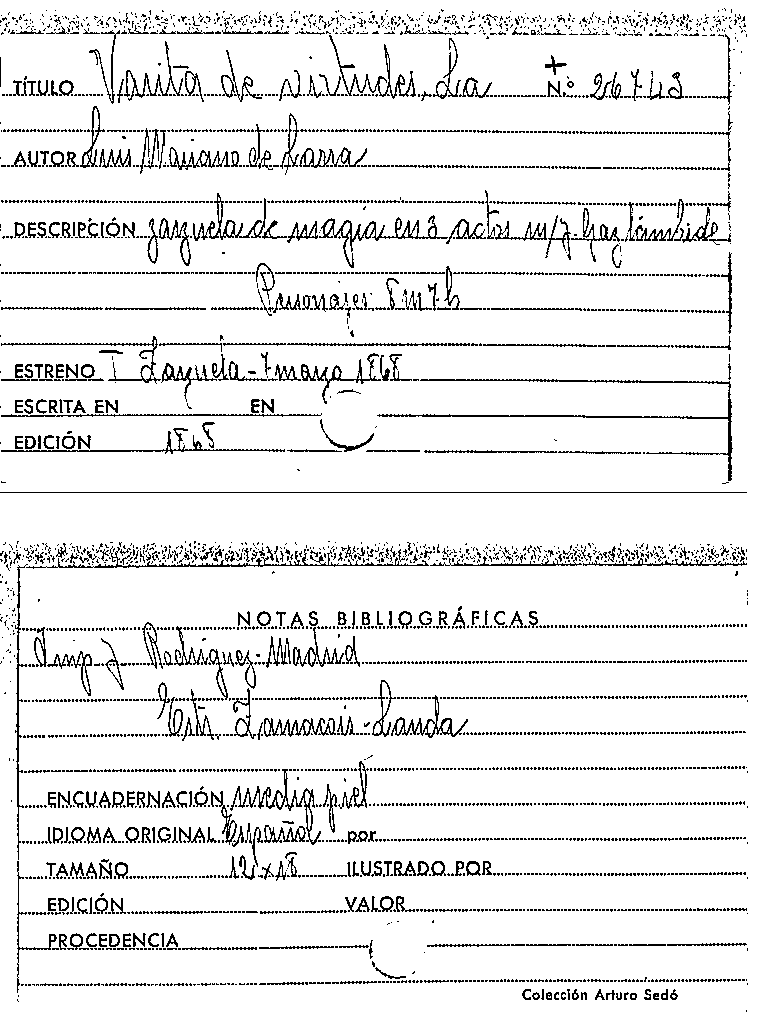 TÍTULO Varita de virtudes, La N.º 26743
AUTOR Luis Mariano de Larra
DESCRIPCIÓN zarzuela de magia en 3 actos m/J. Gaztambide
Personajes 8 m 7 h
ESTRENO T Zarzuela - 7 marzo 1868
ESCRITA EN EN
EDICIÓN 1868
NOTAS BIBLIOGRÁFICAS
Imp J Rodriguez - Madrid
Estr. Zamacois - Landa
ENCUADERNACIÓN media piel
IDIOMA ORIGINAL Español por
TAMAÑO 12 x 18 ILUSTRADO POR
EDICIÓN VALOR
PROCEDENCIA
Colección Arturo Sedó